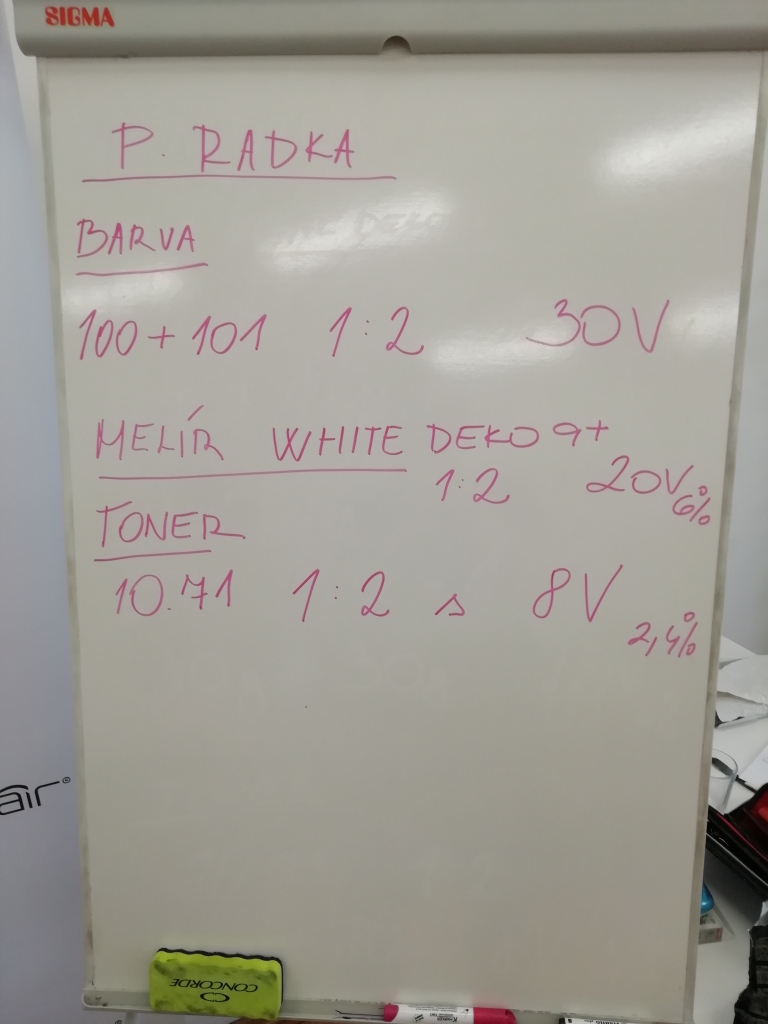 SIGMA
P. RADKA
BARVA
100 + 101 1:2 30V
MELÍR WHITE DEKO 9+
1:2 20V 6%
TONER
10.71 1:2 s 8V
2,4%
air®
CONCORDE